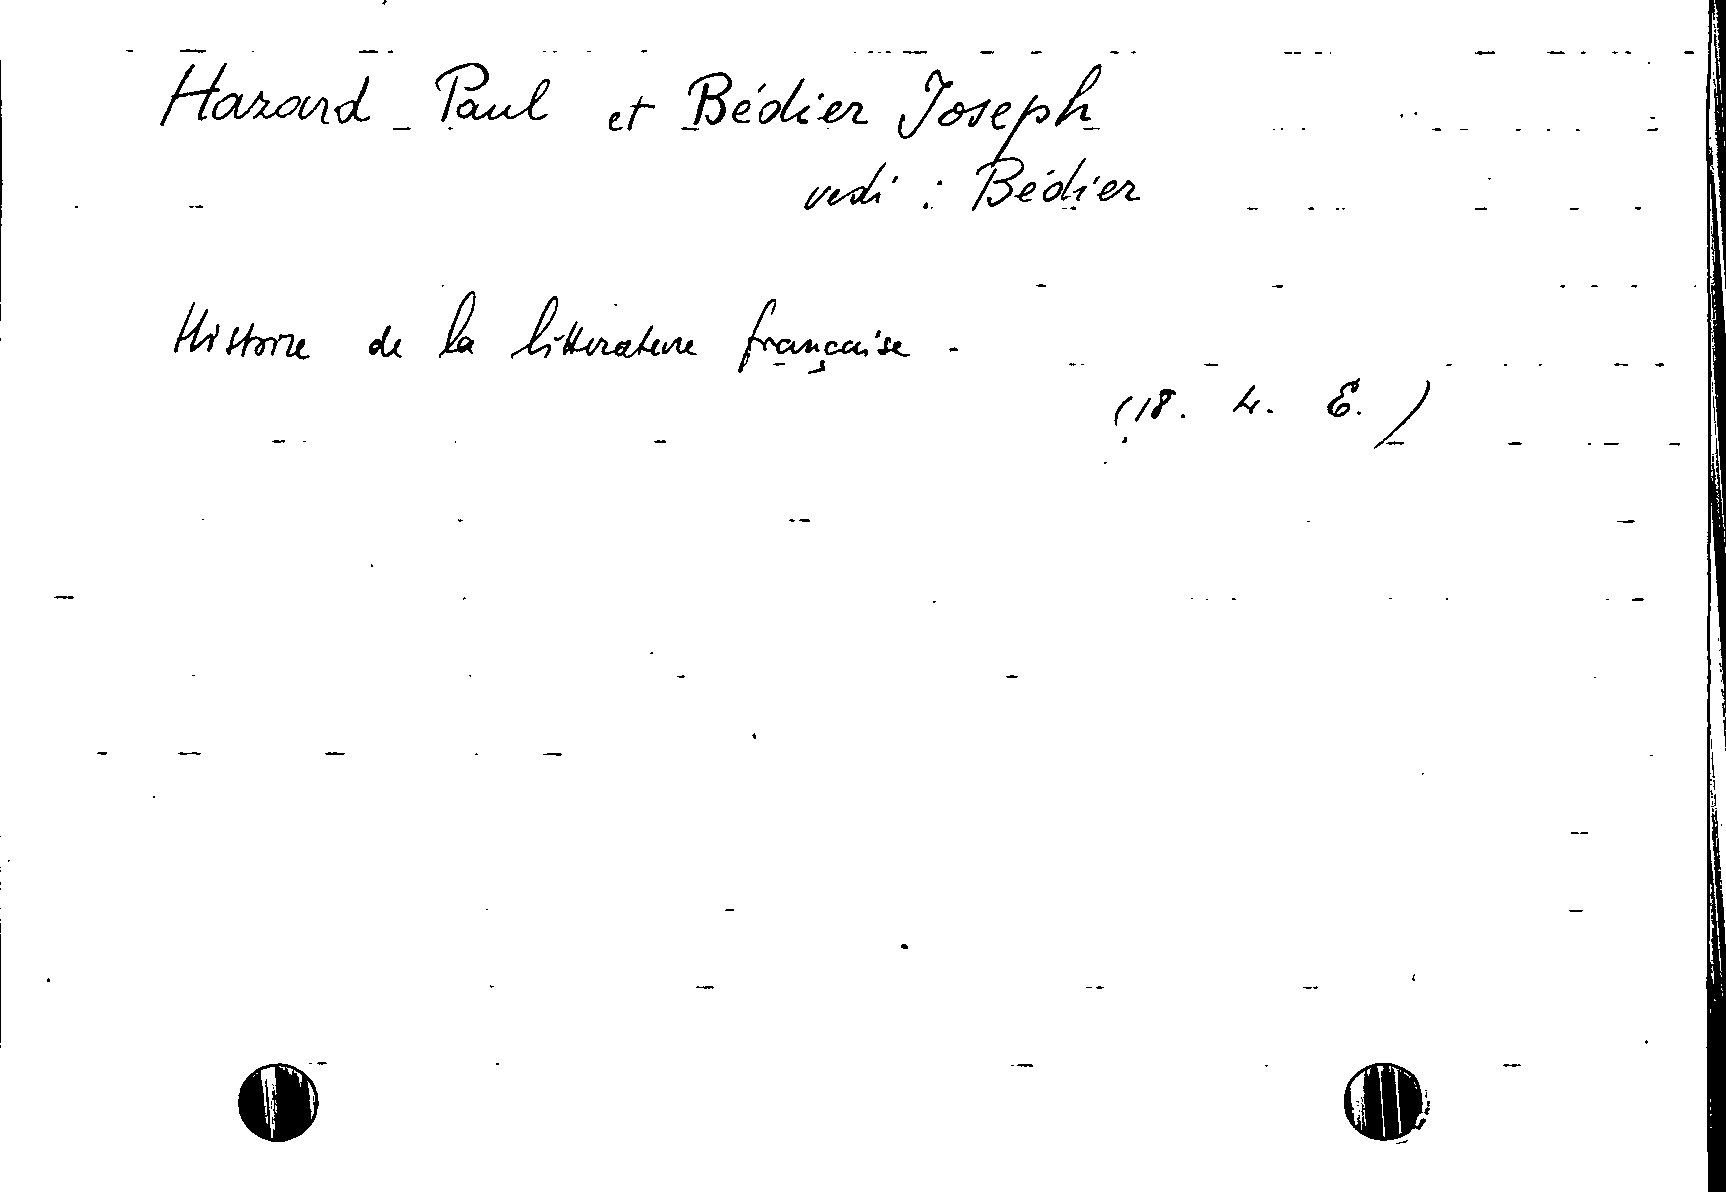 Hazard Paul et Bédier Joseph
vedi : Bédier
Histoire de la littérature française -
(18. 4. E.)